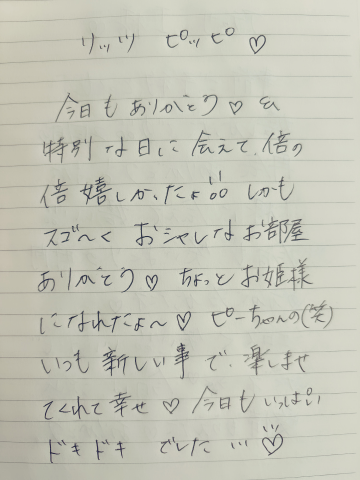 リッツ ピッピ♡
今日もありがとう♡ &
特別な日に会えて、倍の
倍嬉しかったよ!! しかも
スゴ〜く おシャレなお部屋
ありがとう♡ ちょっとお姫様
になれたよ〜♡ ピーちゃんの(笑)
いつも新しい事で、楽しませ
てくれて幸せ♡ 今日もいっぱい
ドキドキ でした…♡